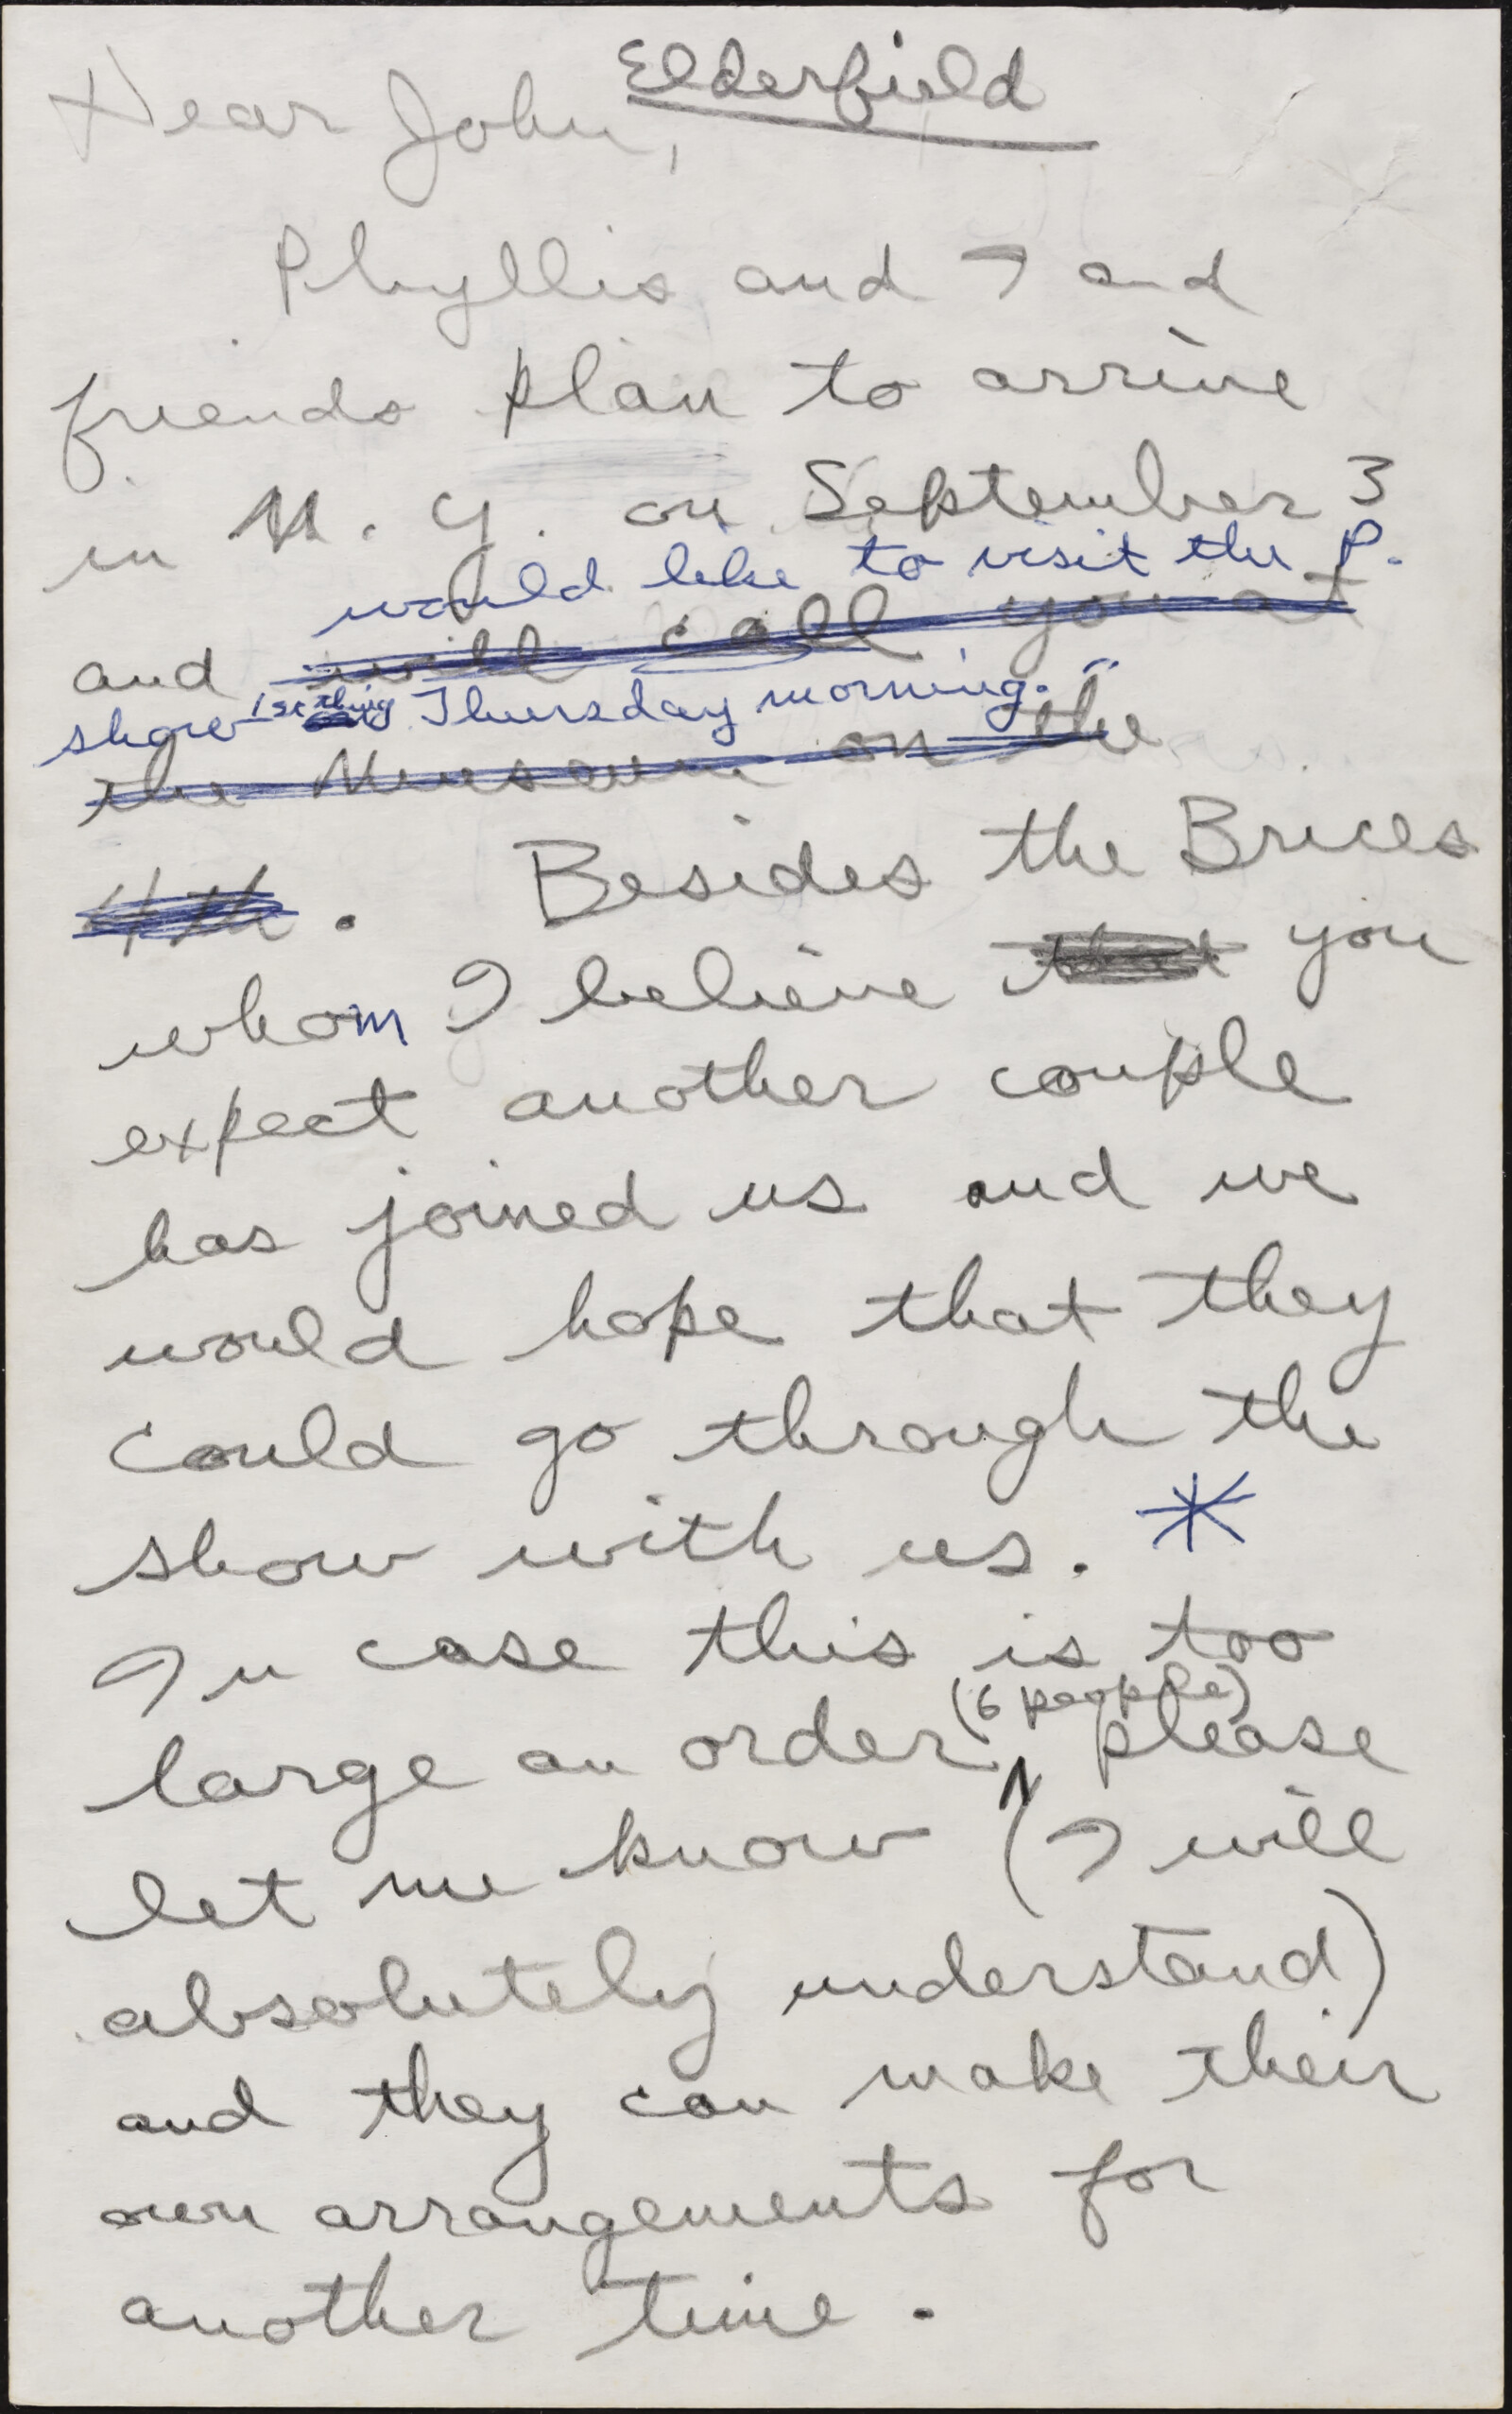 Elderfield
Dear John,
Phyllis and I and
friends plan to arrive
in N. Y. on September 3
would like to visit the P.
and will call you at
show 1st thing Thursday morning.
the Museum on the
4th. Besides the Brices
whom I believe that you
expect another couple
has joined us and we
would hope that they
could go through the
show with us. *
In case this is too
(6 people)
large an order, please
let me know (I will
absolutely understand)
and they can make their
own arrangements for
another time.